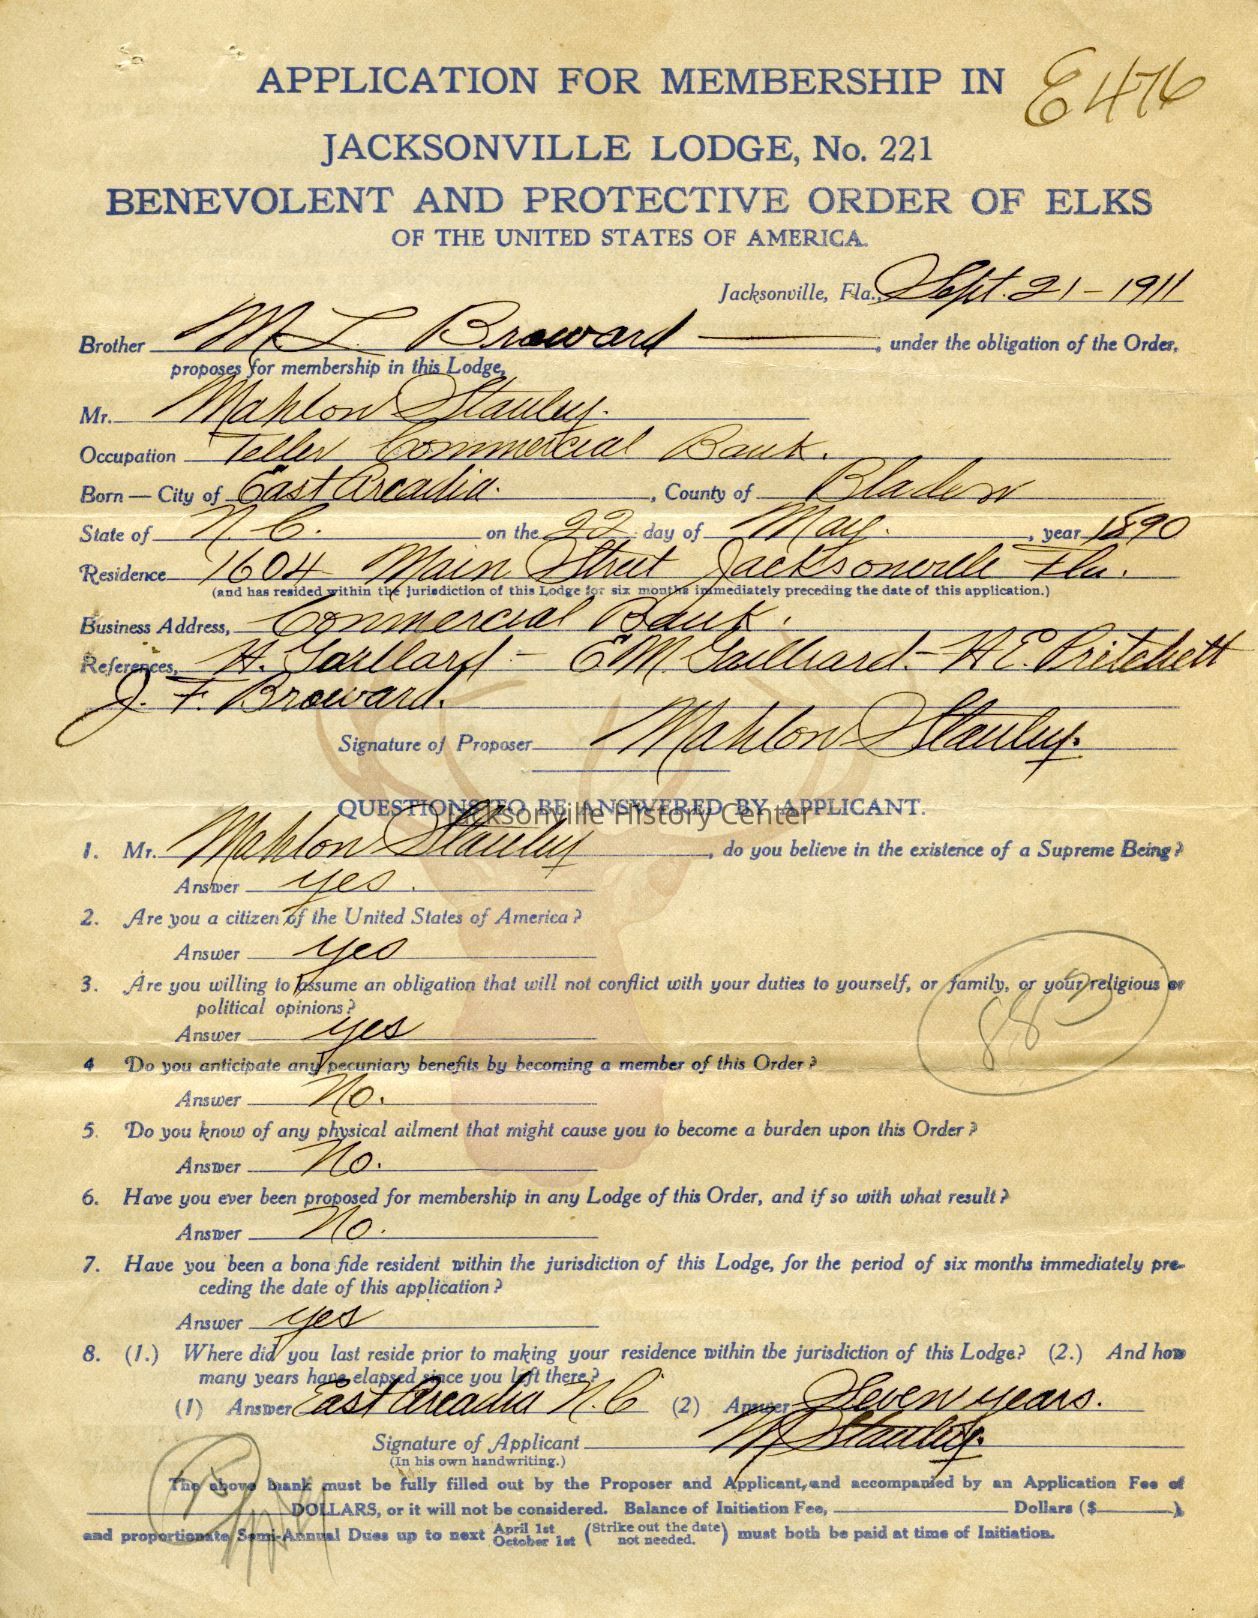 E 476
APPLICATION FOR MEMBERSHIP IN
JACKSONVILLE LODGE, No. 221
BENEVOLENT AND PROTECTIVE ORDER OF ELKS
OF THE UNITED STATES OF AMERICA.
Jacksonville, Fla., Sept. 21 - 1911
Brother M L Broward, under the obligation of the Order,
proposes for membership in this Lodge,
Mr. Mahlon Stanley.
Occupation Teller Commercial Bank.
Born — City of East Arcadia., County of Bladen
State of N. C. on the 22 day of May., year 1890
Residence 1604 Main Street Jacksonville Fla.
(and has resided within the jurisdiction of this Lodge for six months immediately preceding the date of this application.)
Business Address, Commercial Bank.
References, H. Gaillard - E M. Gailliard - H E. Pritchett
J. F. Broward.
Signature of Proposer Mahlon Stanley.
QUESTIONS TO BE ANSWERED BY APPLICANT.
Jacksonville History Center
1. Mr. Mahlon Stanley, do you believe in the existence of a Supreme Being?
Answer yes.
2. Are you a citizen of the United States of America?
Answer yes
3. Are you willing to assume an obligation that will not conflict with your duties to yourself, or family, or your religious or
political opinions?
Answer yes
4 Do you anticipate any pecuniary benefits by becoming a member of this Order?
Answer No.
5. Do you know of any physical ailment that might cause you to become a burden upon this Order?
Answer No.
6. Have you ever been proposed for membership in any Lodge of this Order, and if so with what result?
Answer No.
7. Have you been a bona fide resident within the jurisdiction of this Lodge, for the period of six months immediately pre-
ceding the date of this application?
Answer yes
8. (1.) Where did you last reside prior to making your residence within the jurisdiction of this Lodge? (2.) And how
many years have elapsed since you left there?
(1) Answer East Arcadia N. C (2) Answer Seven years.
Signature of Applicant M Stanley.
(In his own handwriting.)
The above blank must be fully filled out by the Proposer and Applicant, and accompanied by an Application Fee of
DOLLARS, or it will not be considered. Balance of Initiation Fee, Dollars ($ ),
and proportionate Semi-Annual Dues up to next April 1st October 1st (Strike out the date not needed.) must both be paid at time of Initiation.